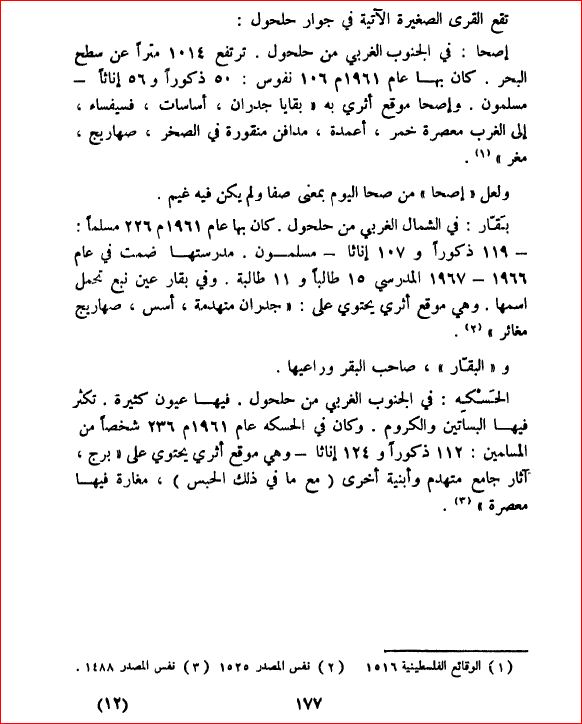 تقع القرى الصغيرة الآتية في جوار حلحول :
إصحا : في الجنوب الغربي من حلحول . ترتفع ١٠١٤ متراً عن سطح
البحر . كان بها عام ١٩٦١م ١٠٦ نفوس : ٥٠ ذكوراً و ٥٦ إناثاً –
مسلمون . وإصحا موقع أثري به « بقايا جدران ، أساسات ، فسيفساء ،
إلى الغرب معصرة خمر ، أعمدة ، مدافن منقورة في الصخر ، صهاريج ،
مغر » (١) .
ولعل « إصحا » من صحا اليوم بمعنى صفا ولم يكن فيه غيم .
بقّار : في الشمال الغربي من حلحول . كان بها عام ١٩٦١م ٢٢٦ مسلماً :
– ١١٩ ذكوراً و ١٠٧ إناثا – مسلمون . مدرستها ضمت في عام
١٩٦٦ – ١٩٦٧ المدرسي ١٥ طالباً و ١١ طالبة . وفي بقار عين نبع تحمل
اسمها . وهي موقع أثري يحتوي على : « جدران متهدمة ، أسس ، صهاريج
مغائر » (٢) .
و « البقّار » ، صاحب البقر وراعيها .
الحَسْكِيه : في الجنوب الغربي من حلحول . فيها عيون كثيرة . تكثر
فيها البساتين والكروم . وكان في الحسكه عام ١٩٦١م ٢٣٦ شخصاً من
المسلمين : ١١٢ ذكوراً و ١٢٤ إناثا – وهي موقع أثري يحتوي على « برج ،
آثار جامع متهدم وأبنية أخرى ( مع ما في ذلك الحبس ) ، مغارة فيها
معصرة » (٣) .
(١) الوقائع الفلسطينية ١٥١٦ (٢) نفس المصدر ١٥٢٥ (٣) نفس المصدر ١٤٨٨ .
١٧٧ (١٢)